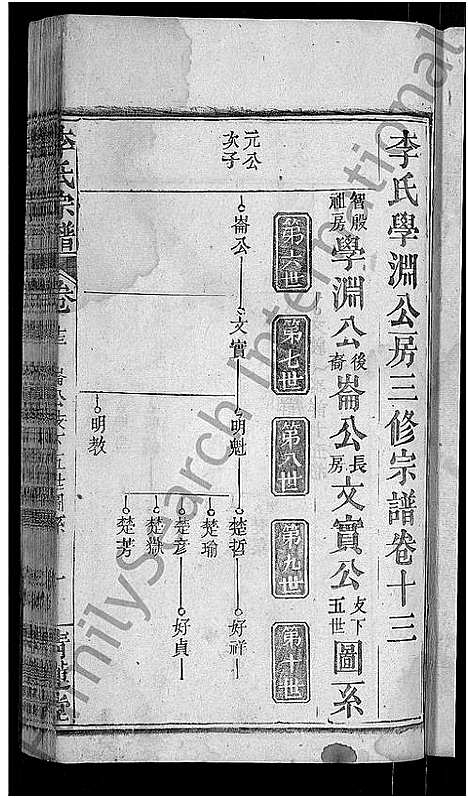 李氏學淵公房三修宗譜卷十三
智殷祖房學淵公後裔崙公長房文實公支下五世圖系
第六世
第七世
第八世
第九世
第十世
元公次子
崙公
文實
明魁
楚哲
好祥
楚瑜
楚彥
好貞
楚嶽
楚芳
明教
李氏宗譜
卷十三
崙公支下五世圖系
一
FamilySearch International